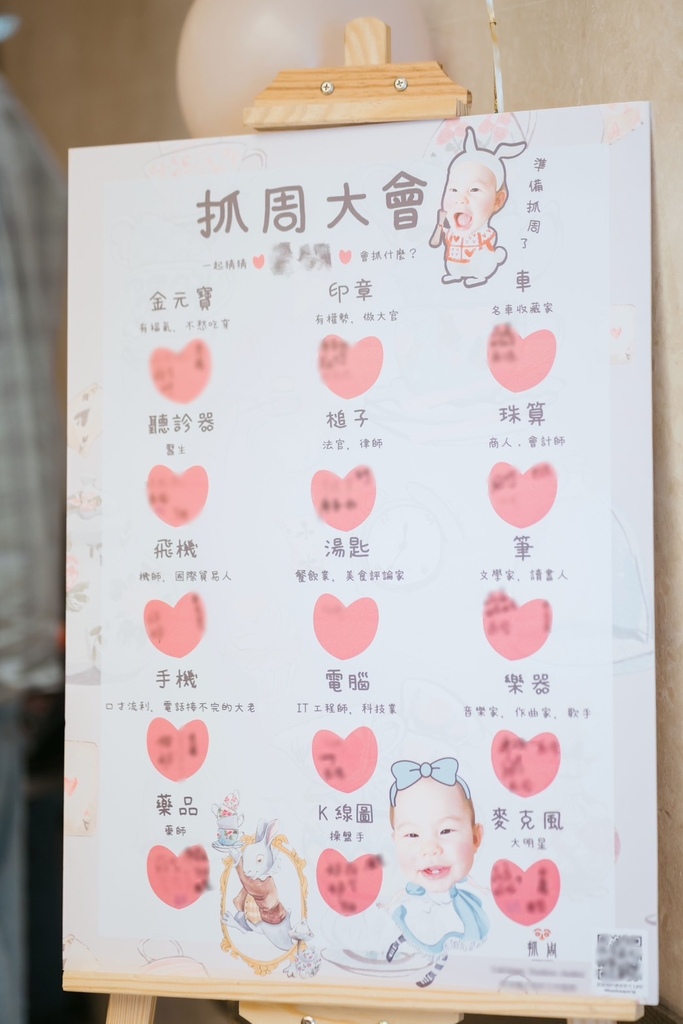 抓周大會
準備抓周了
一起猜猜
會抓什麼？
金元寶
有福氣、不愁吃穿
印章
有權勢、做大官
車
名車收藏家
聽診器
醫生
槌子
法官、律師
珠算
商人、會計師
飛機
機師、國際貿易人
湯匙
餐飲業、美食評論家
筆
文學家、讀書人
手機
口才流利、電話接不完的大老
電腦
IT工程師、科技業
樂器
音樂家、作曲家、歌手
藥品
藥師
K線圖
操盤手
麥克風
大明星
抓周